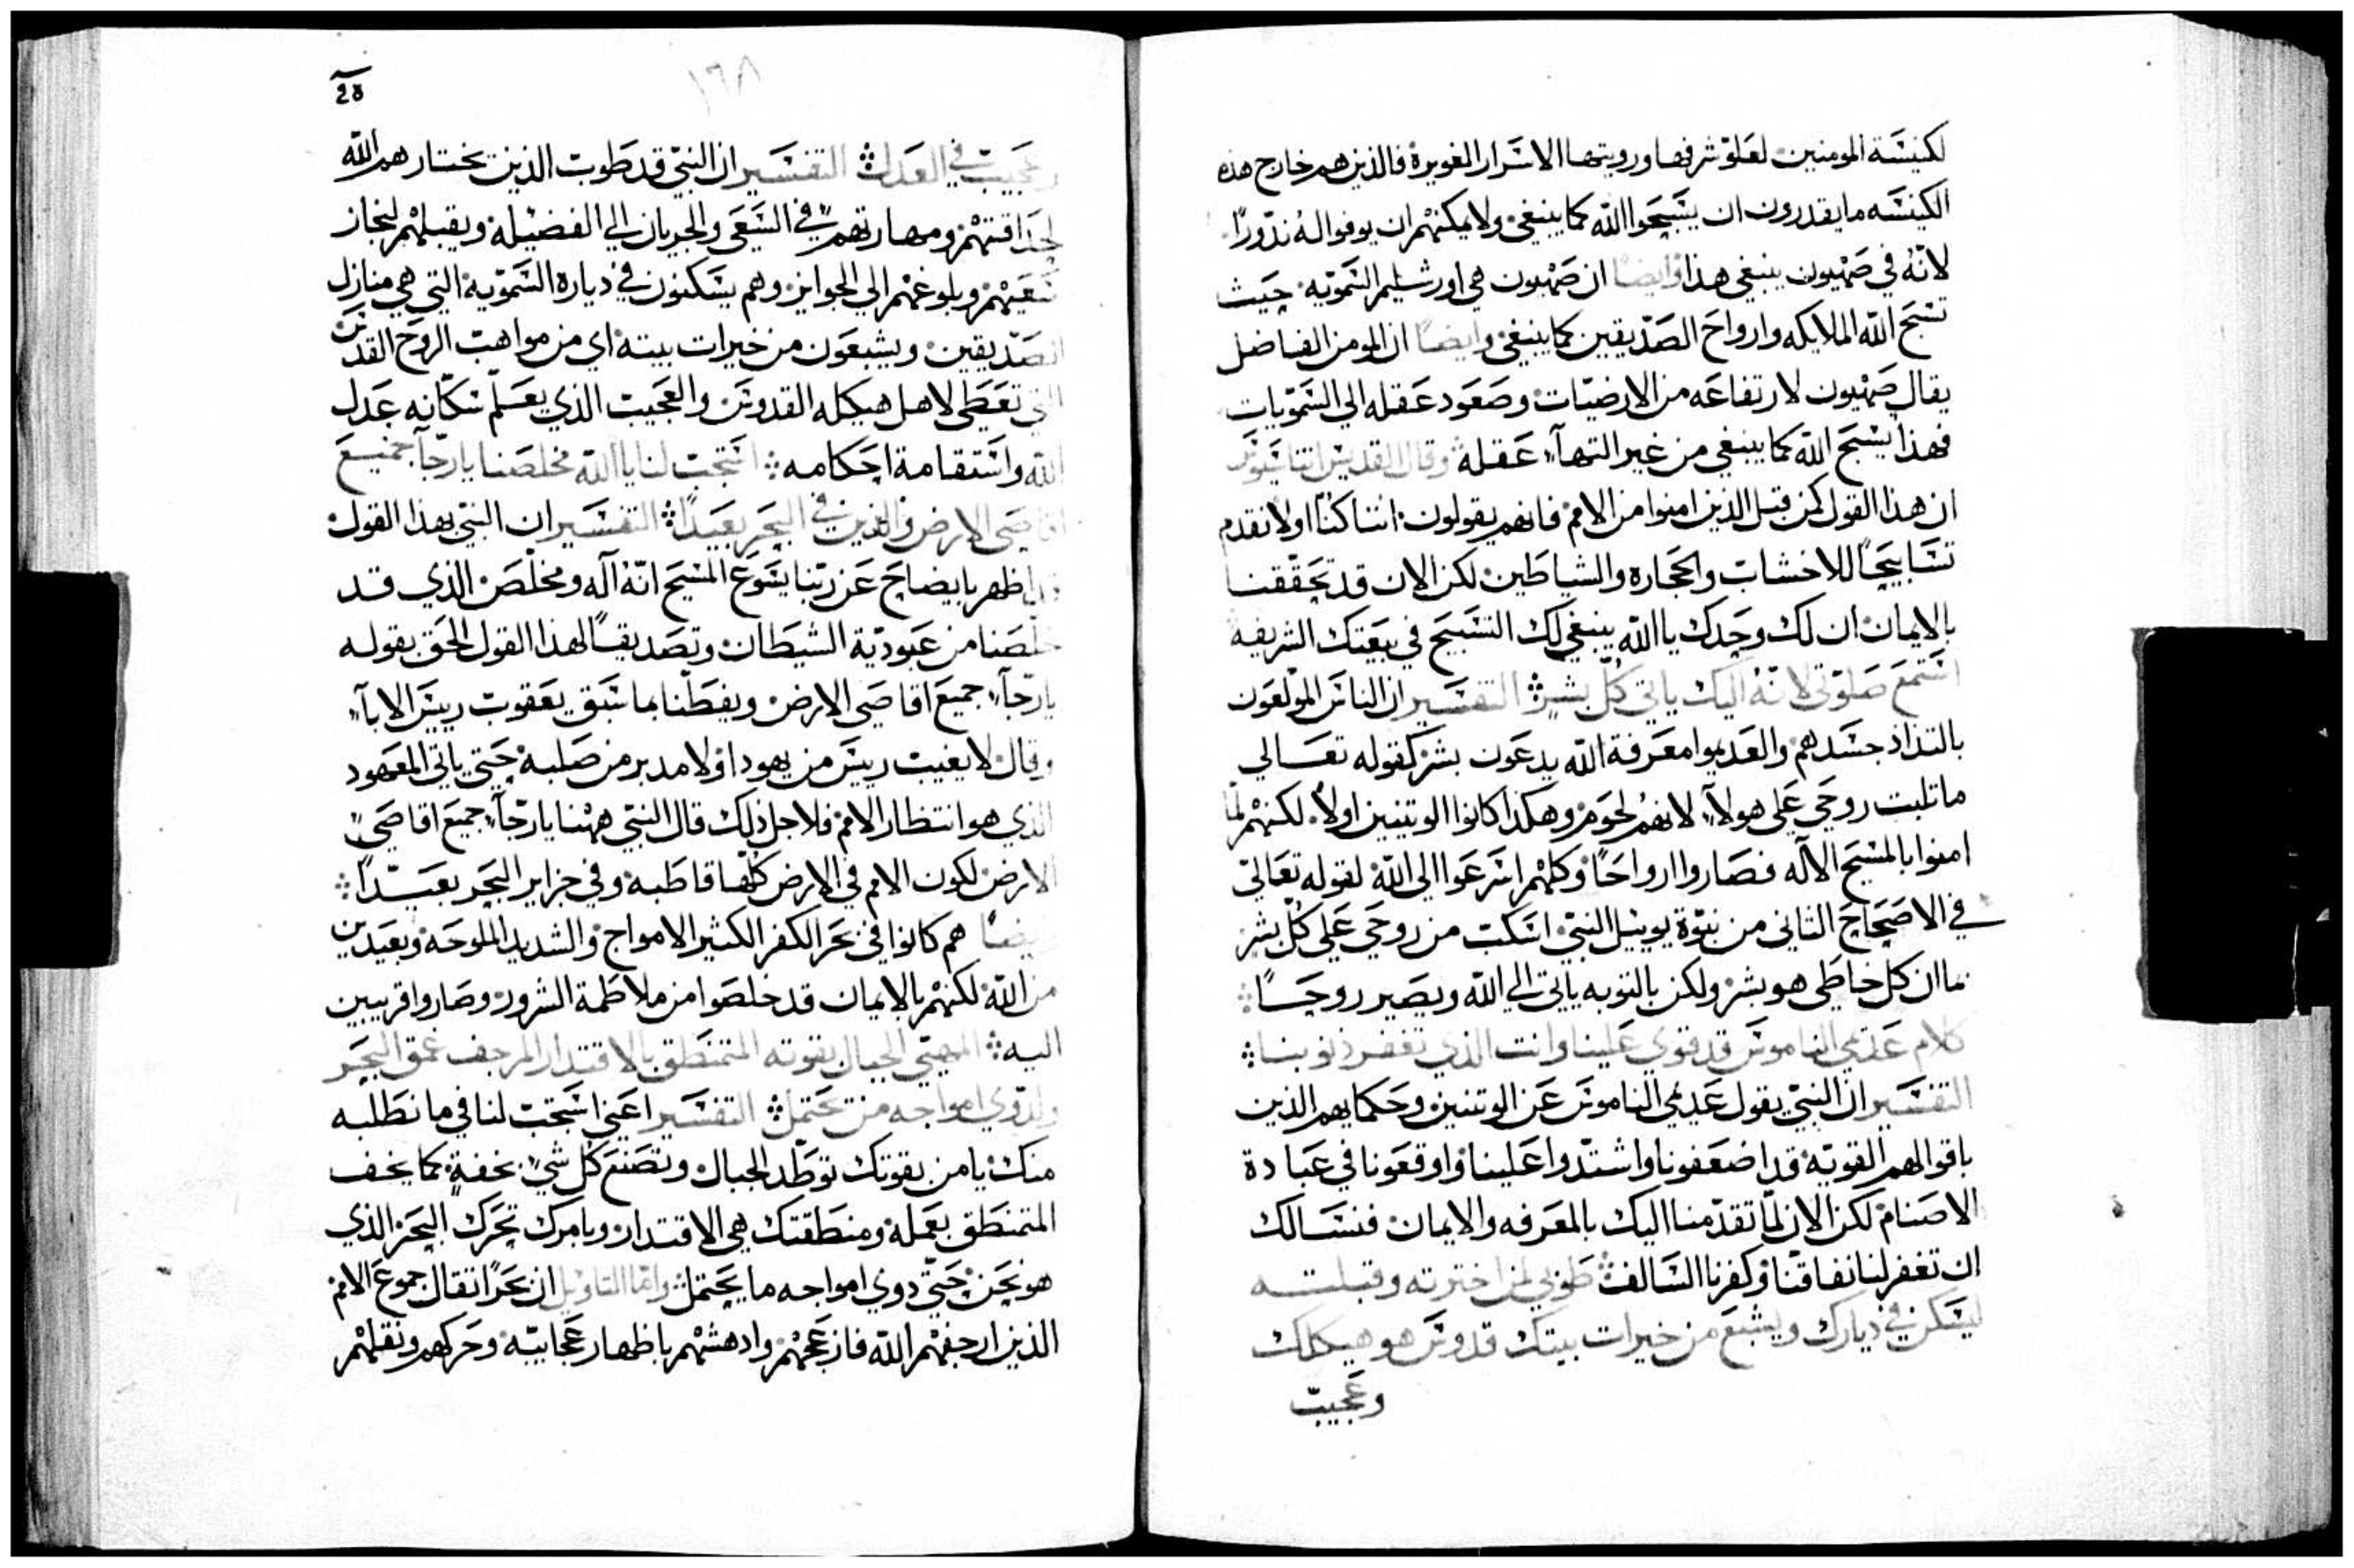 لكنيسة المومنين لعلو شرفها ورويتها الاسرار الغويرة فالذين هم خارج هذه
الكنيسه ما يقدرون ان يسبحوا الله كما ينبغي ولا يمكنهم ان يوفوا له نذورًا
لانه في صهيون ينبغي هذا وايضًا ان صهيون هي اورشليم السموية حيث
تسبح الله الملايكه وارواح الصديقين كما ينبغي وايضًا ان المومن الفاضل
يقال صهيون لارتفاعه من الارضيات وصعود عقله الى السمويات
فهذا يسبح الله كما ينبغي من غير التهآء عقله وقال القديس اتناسيوس
ان هذا القول كمن قبل الذين امنوا من الامم فانهم يقولون اننا كنا اولا نقدم
تسابيحًا للاخشاب والحجاره والشياطين لكن الان قد تحققنا
بالايمان ان لك وحدك يا الله ينبغي لك التسبيح في بيعتك الشريفه
استمع صلوتي لانه اليك ياتي كل بشر التفسير ان الناس المولعون
بالتذاذ جسدهم والعديموا معرفة الله يدعون بشر كقوله تعالي
ما تلبت روحي على هولآء لانهم لحوم وهكذا كانوا الوتنيين اولاً لكنهم لما
امنوا بالمسيح الاله فصاروا ارواحًا وكلهم اسرعوا الى الله لقوله تعالى
في الاصحاح التاني من نبوة يوييل النبي اسكب من روحي على كل بشر
فما ان كل خاطى هو بشر ولكن بالتوبه ياتي الي الله ويصير روحًا
كلام عديمي الناموس قد قوي علينا وانت الذي تغفر ذنوبنا
التفسير ان النبي يقول عديمي الناموس عن الوتنيين وحكمايهم الذين
باقوالهم القوية قد اضعفونا واشتدوا علينا واوقعونا في عبادة
الاصنام لكن الان لما تقدمنا اليك بالمعرفه والايمان فنسالك
ان تغفر لنا نفاقنا وكفرنا السالف طوبي لمن اخترته وقبلته
ليسكن في ديارك ويشبع من خيرات بيتك قدوس هو هيكلك
وعجيب
١٦٨
وعجيب في العدل التفسير ان النبي قد طوب الذين يختارهم الله
لحذاقتهم ومهارتهم في السعى والجريان الي الفضيله ويقبلهم لنجاز
سعيهم وبلوغهم الي الجوايز وهم يسكنون في دياره السموية التي هي منازل
الصديقين ويشبعون من خيرات بيته اي من مواهب الروح القدس
التي تعطى لاهل هيكله القدوس والعجيب الذي يعلم سكانه عدل
الله واستقامة احكامه استجب لنا يا الله مخلصنا يا رجآ جميع
اقاصي الارض والذين في البحر بعيدًا التفسير ان النبي بهذا القول
قد اظهر بايضاح عن ربنا يسوع المسيح انه اله ومخلص الذي قد
خلصنا من عبودية الشيطان وتصديقًا لهذا القول الحق بقوله
يا رجآء جميع اقاصي الارض ويفطننا بما سبق يعقوب رييس الابآء
وقال لا يغيب رييس من يهودا ولا مدبر من صلبه حتي ياتي المعهود
الذي هو انتظار الامم فلاجل ذلك قال النبي ههنا يا رجآء جميع اقاصي
الارض لكون الامم في الارض كلها قاطبه وفي جزاير البحر بعيدًا
وايضًا هم كانوا في بحر الكفر الكثير الامواج والشديد الملوحه وبعيدين
من الله لكنهم بالايمان قد خلصوا من ملاطمة الشرور وصاروا قريبين
اليه المهيي الجبال بقوته المتمنطق بالاقتدار المرجف عمق البحر
ولدوي امواجه من يحتمل التفسير اعني استجب لنا في ما نطلبه
منك يا من بقوتك توطد الجبال وتصنع كل شي بخفة كما يخف
المتمنطق بعمله ومنطقتك هي الاقتدار وبامرك تحرك البحر الذي
هو يحن حتي دوي امواجه ما يحتمل واما التاويل ان بحرًا تقال جموع الامم
الذين ارجفهم الله فازعجهم وادهشهم باظهار عجاييه وحركهم ونقلهم